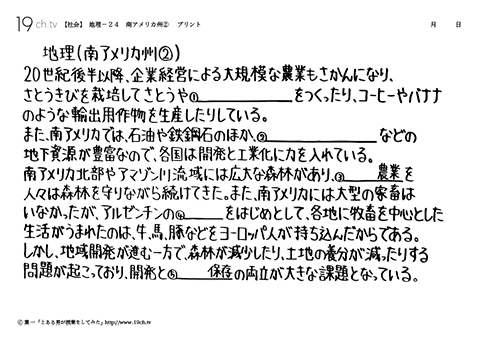 19ch.tv 【社会】 地理－24 南アメリカ州② プリント 月 日
地理(南アメリカ州②)
20世紀後半以降、企業経営による大規模な農業もさかんになり、
さとうきびを栽培してさとうや①____________をつくったり、コーヒーやバナナ
のような輸出用作物を生産したりしている。
また、南アメリカでは、石油や鉄鋼石のほか、②____________などの
地下資源が豊富なので、各国は開発と工業化に力を入れている。
南アメリカ北部やアマゾン川流域には広大な森林があり、③______農業を
人々は森林を守りながら続けてきた。また、南アメリカには大型の家畜は
いなかったが、アルゼンチンの④______をはじめとして、各地に牧畜を中心とした
生活がうまれたのは、牛、馬、豚などをヨーロッパ人が持ち込んだからである。
しかし、地域開発が進む一方で、森林が減少したり、土地の養分が減ったりする
問題が起こっており、開発と⑤____保全の両立が大きな課題となっている。
© 葉一「とある男が授業をしてみた」http://www.19ch.tv